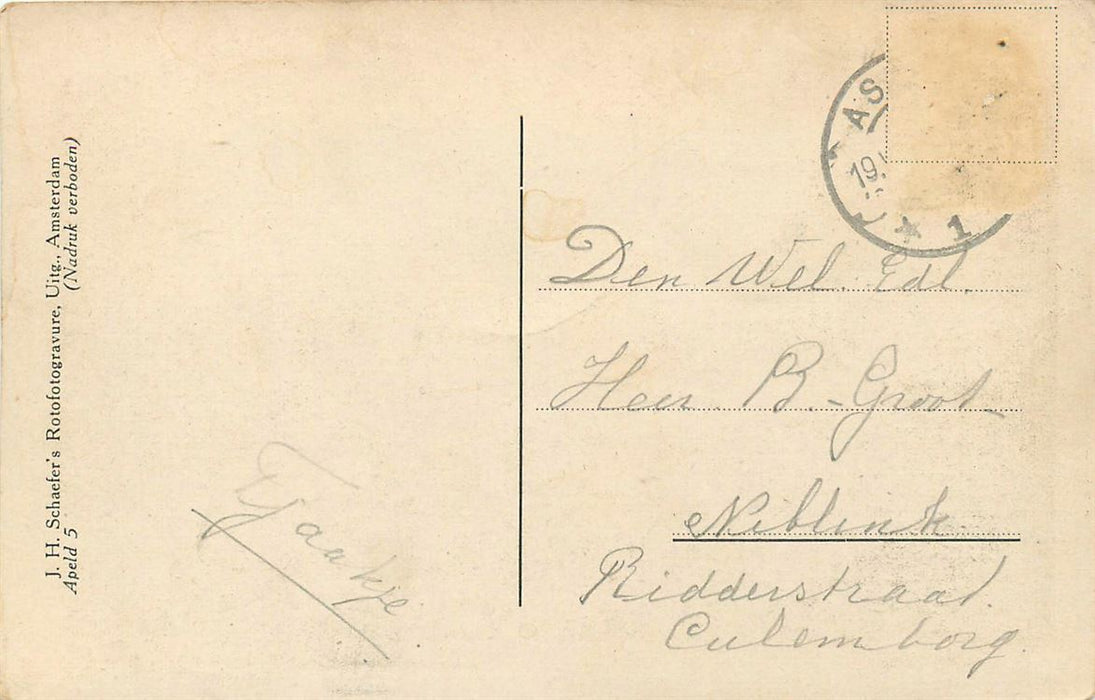 J. H. Schaefer's Rotofotogravure, Uitg., Amsterdam
Apeld 5 (Nadruk verboden)
Tjaakje
AS
19.
1
Den Wel. Edl.
Heer B. Groot-
Niblink
Ridderstraat.
Culemborg.